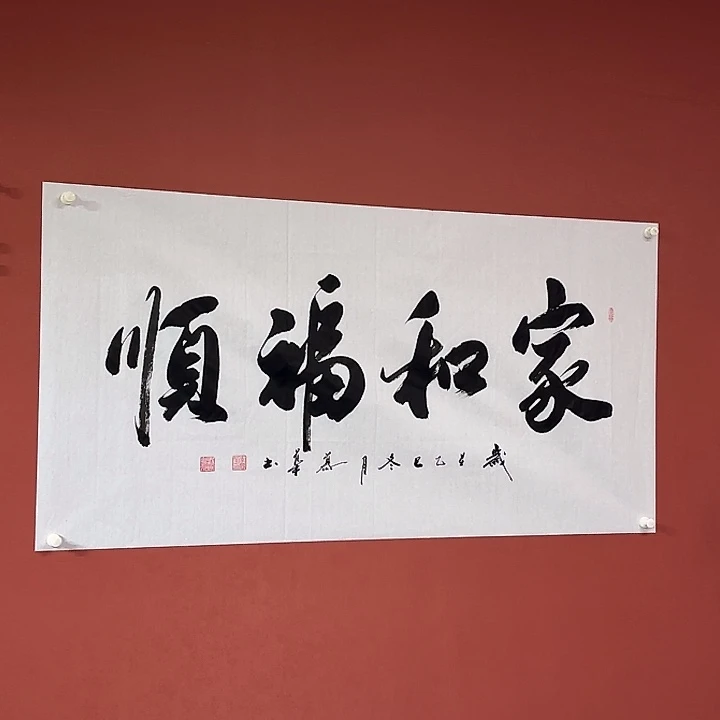 家和福順
歲在乙巳冬月慕華書